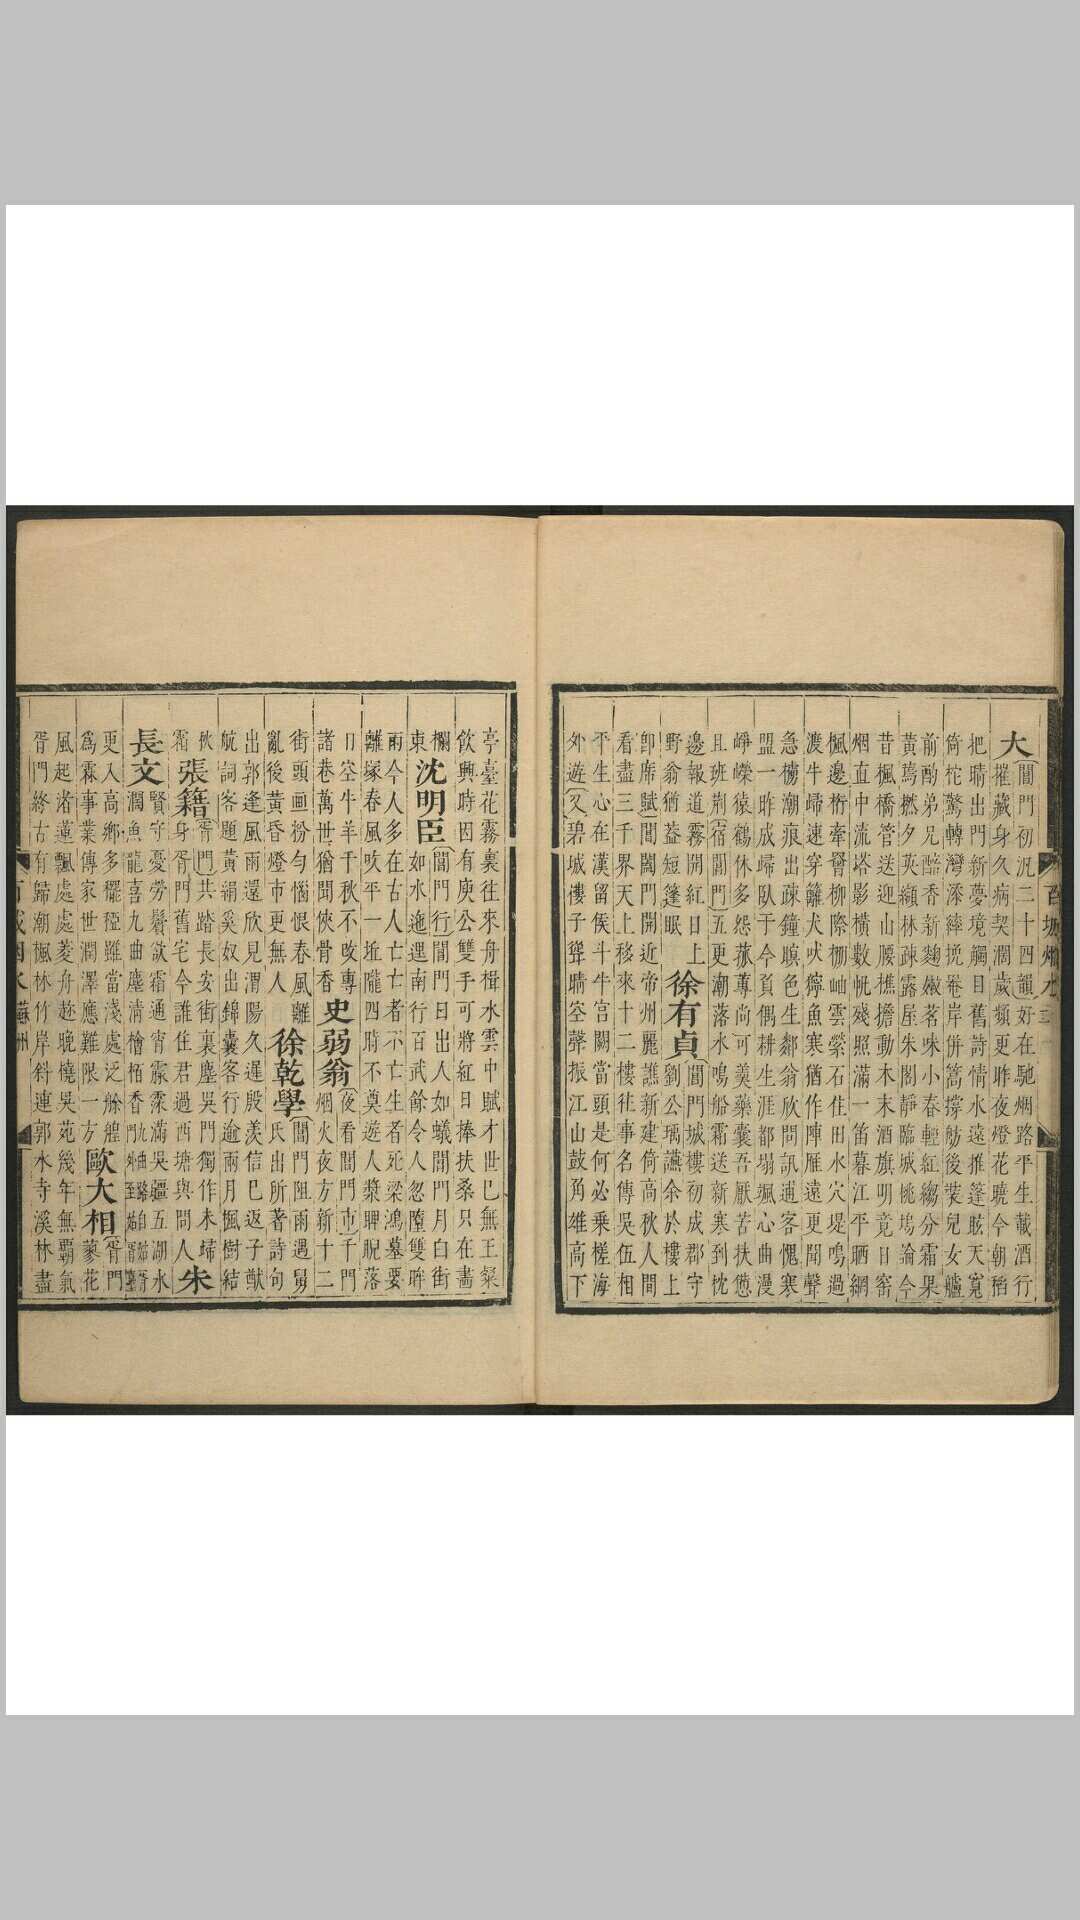 大〔閶門初況二十四韻〕好在馳烟路平生載酒行
摧藏身久病契濶歲頻更昨夜燈花曉今朝稻
把晴出門新夢境觸目舊詩情水遠推篷眩天寬
倚柁驚轉灣添縴挽卷岸併篙撐舫後裝兒女艫
前酌弟兄醅香新麴嫩茗味小春輕紅縐分霜果
黃蔫撚夕英纈林疎露屋朱閣靜臨城桃塢論今
昔楓橋管送迎山腰樵擔動木末酒旗明竟日窑
烟直中流塔影橫數帆殘照滿一笛暮江平晒網
楓邊桁牽罾柳際棚岫雲縈石住田水穴堤鳴過
渡牛歸速穿籬犬吠獰魚寒猶作陣雁遠更聞聲
急櫓潮痕出疎鐘暝色生鄰翁欣問訊逋客愧寒
盟一昨成歸臥于今負偶耕生涯都塌颯心曲漫
崢嶸猿鶴休多怨菰蓴尚可羹藥囊吾厭苦扶憊
且班荆〔宿閶門〕五更潮落水鳴船霜送新寒到枕
邊報道霧開紅日上
野翁猶葢短篷眠　徐有貞〔閶門城樓初成郡守劉公瑀讌余於樓上
卽席賦〕閶闔門開近帝州麗譙新建倚高秋人間
看盡三千界天上移來十二樓徃事名傳吳伍相
平生心在漢留侯斗牛宫闕當頭是何必乗槎海
外遊〔又〕碧城樓子聳晴空聲振江山鼓角雄高下
亭臺花霧裏往來舟楫水雲中賦才世巳無王粲
飲興時因有庾公雙手可將紅日捧扶桑只在畵
欄
東　沈明臣〔閶門行〕閶門日出人如蟻閶門月白街
如水迤邐南行百武餘令人忽墮雙眸
雨今人多在古人亡亡者不亡生者死梁鴻墓要
離塚春風吹平一坵隴四時不奠遊人漿睥睨落
日空牛羊千秋不改專
諸巷萬世猶聞俠骨香　史弱翁〔夜看閶門市〕千門
烟火夜方新十二
街頭画粉勻惱恨春風離
亂後黃昏燈市更無人　徐乾學〔閶門阻雨遇舅
氏出所著詩句
出郭逢風雨還欣見渭陽久遲殷羨信巳返子猷
航詞客題黃絹奚奴出錦囊客行逾兩月楓樹結
秋
霜　張籍〔胥門〕共踏長安街裏塵吳門獨作未歸
身胥門舊宅今誰住君過西塘與問人　朱
長文
賢守憂勞鬢欲霜通宵霖霂滿吳疆五湖水
濶魚龍喜九曲塵淸檜栢香
更入高鄉多䆉稏雖當淺處泛艅艎
爲霖事業傳家世潤澤應難限一方　歐大相〔胥門〕蓼花
風起渚蓮飄處處菱舟趁晚橈吳苑幾年無覇氣
胥門終古有歸潮楓林竹岸斜連郭水寺溪林盡